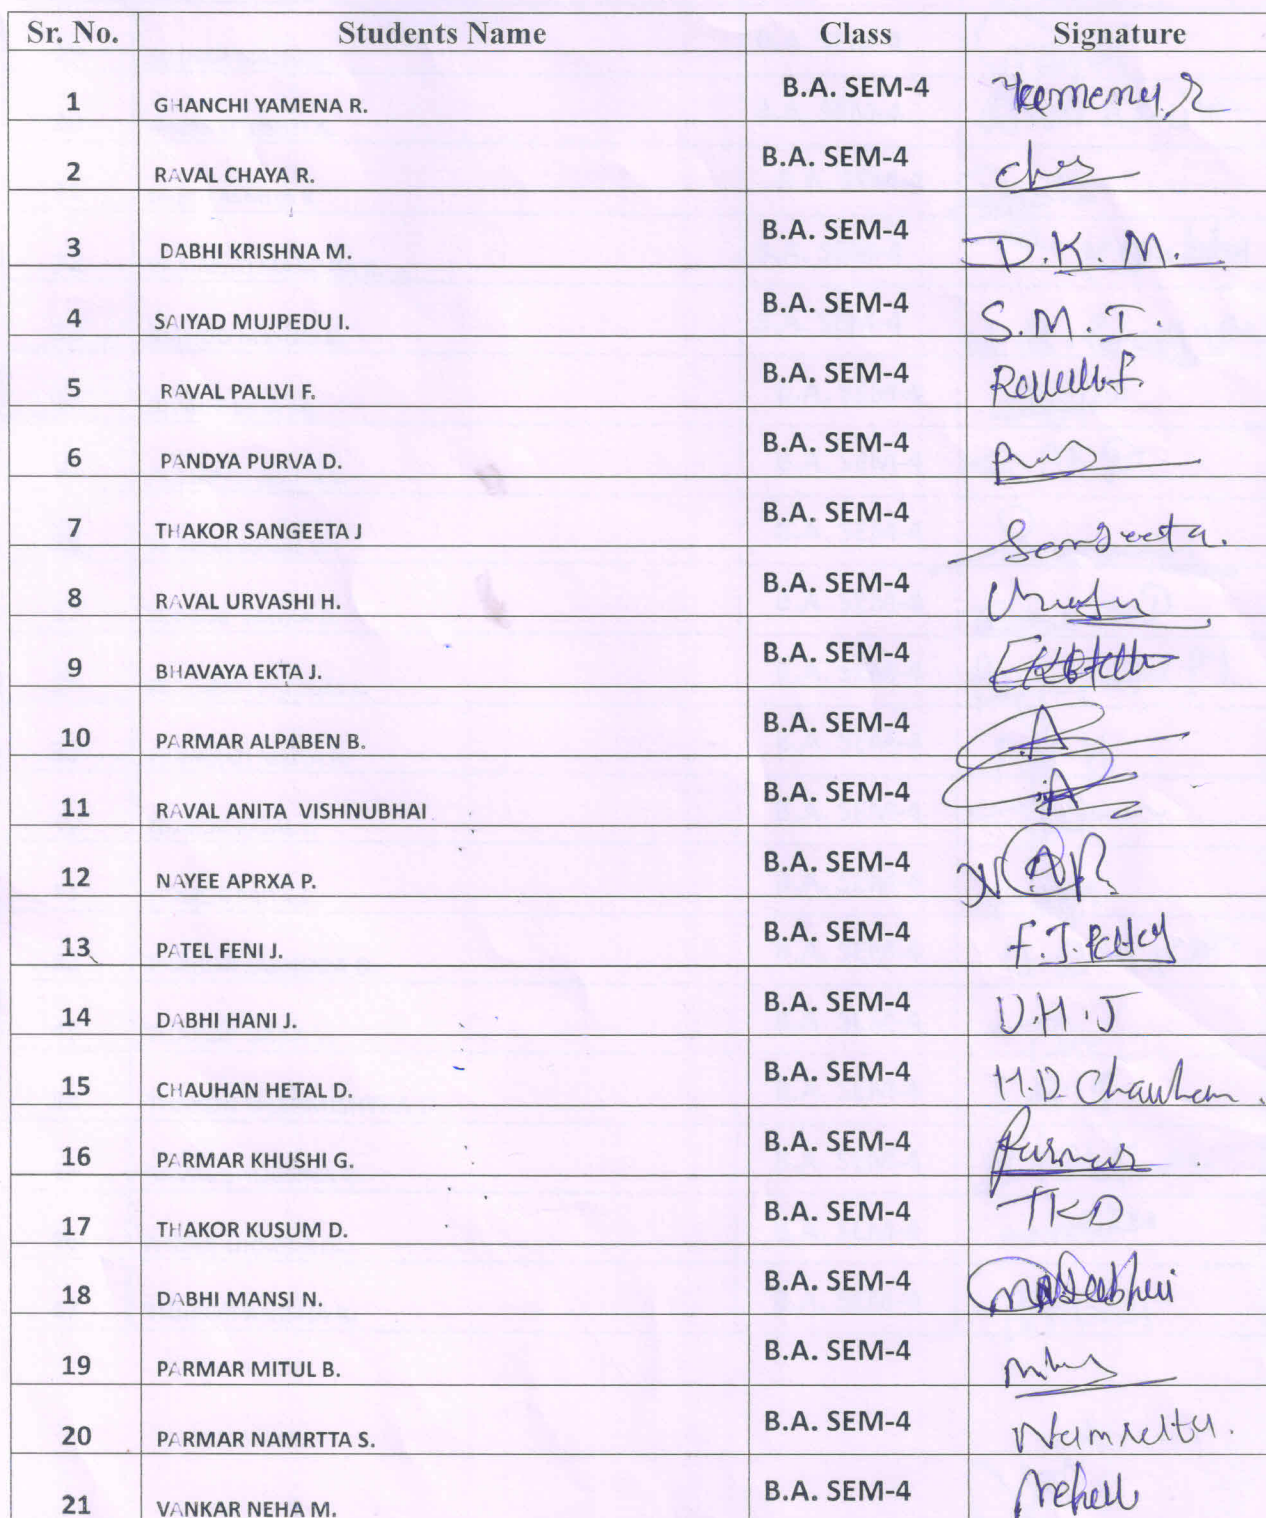 Sr. No. Students Name Class Signature
1 GHANCHI YAMENA R. B.A. SEM-4
2 RAVAL CHAYA R. B.A. SEM-4
3 DABHI KRISHNA M. B.A. SEM-4 D.K.M.
4 SAIYAD MUJPEDU I. B.A. SEM-4 S.M.I.
5 RAVAL PALLVI F. B.A. SEM-4
6 PANDYA PURVA D. B.A. SEM-4
7 THAKOR SANGEETA J B.A. SEM-4 Sangeeta.
8 RAVAL URVASHI H. B.A. SEM-4
9 BHAVAYA EKTA J. B.A. SEM-4
10 PARMAR ALPABEN B. B.A. SEM-4 A
11 RAVAL ANITA VISHNUBHAI B.A. SEM-4 A
12 NAYEE APRXA P. B.A. SEM-4
13 PATEL FENI J. B.A. SEM-4 F.J.Patel
14 DABHI HANI J. B.A. SEM-4 D.H.J
15 CHAUHAN HETAL D. B.A. SEM-4 H.D. Chauhan.
16 PARMAR KHUSHI G. B.A. SEM-4 Parmar
17 THAKOR KUSUM D. B.A. SEM-4 TKD
18 DABHI MANSI N. B.A. SEM-4
19 PARMAR MITUL B. B.A. SEM-4
20 PARMAR NAMRTTA S. B.A. SEM-4 Namratta.
21 VANKAR NEHA M. B.A. SEM-4